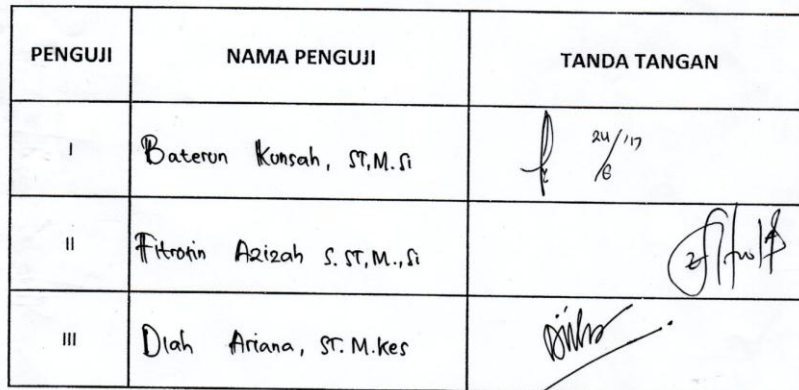 PENGUJI NAMA PENGUJI TANDA TANGAN
I Baterun Kunsah, ST, M.Si 24/6/'17
II Fitrotin Azizah S.ST, M.,Si
III Diah Ariana, ST. M.Kes